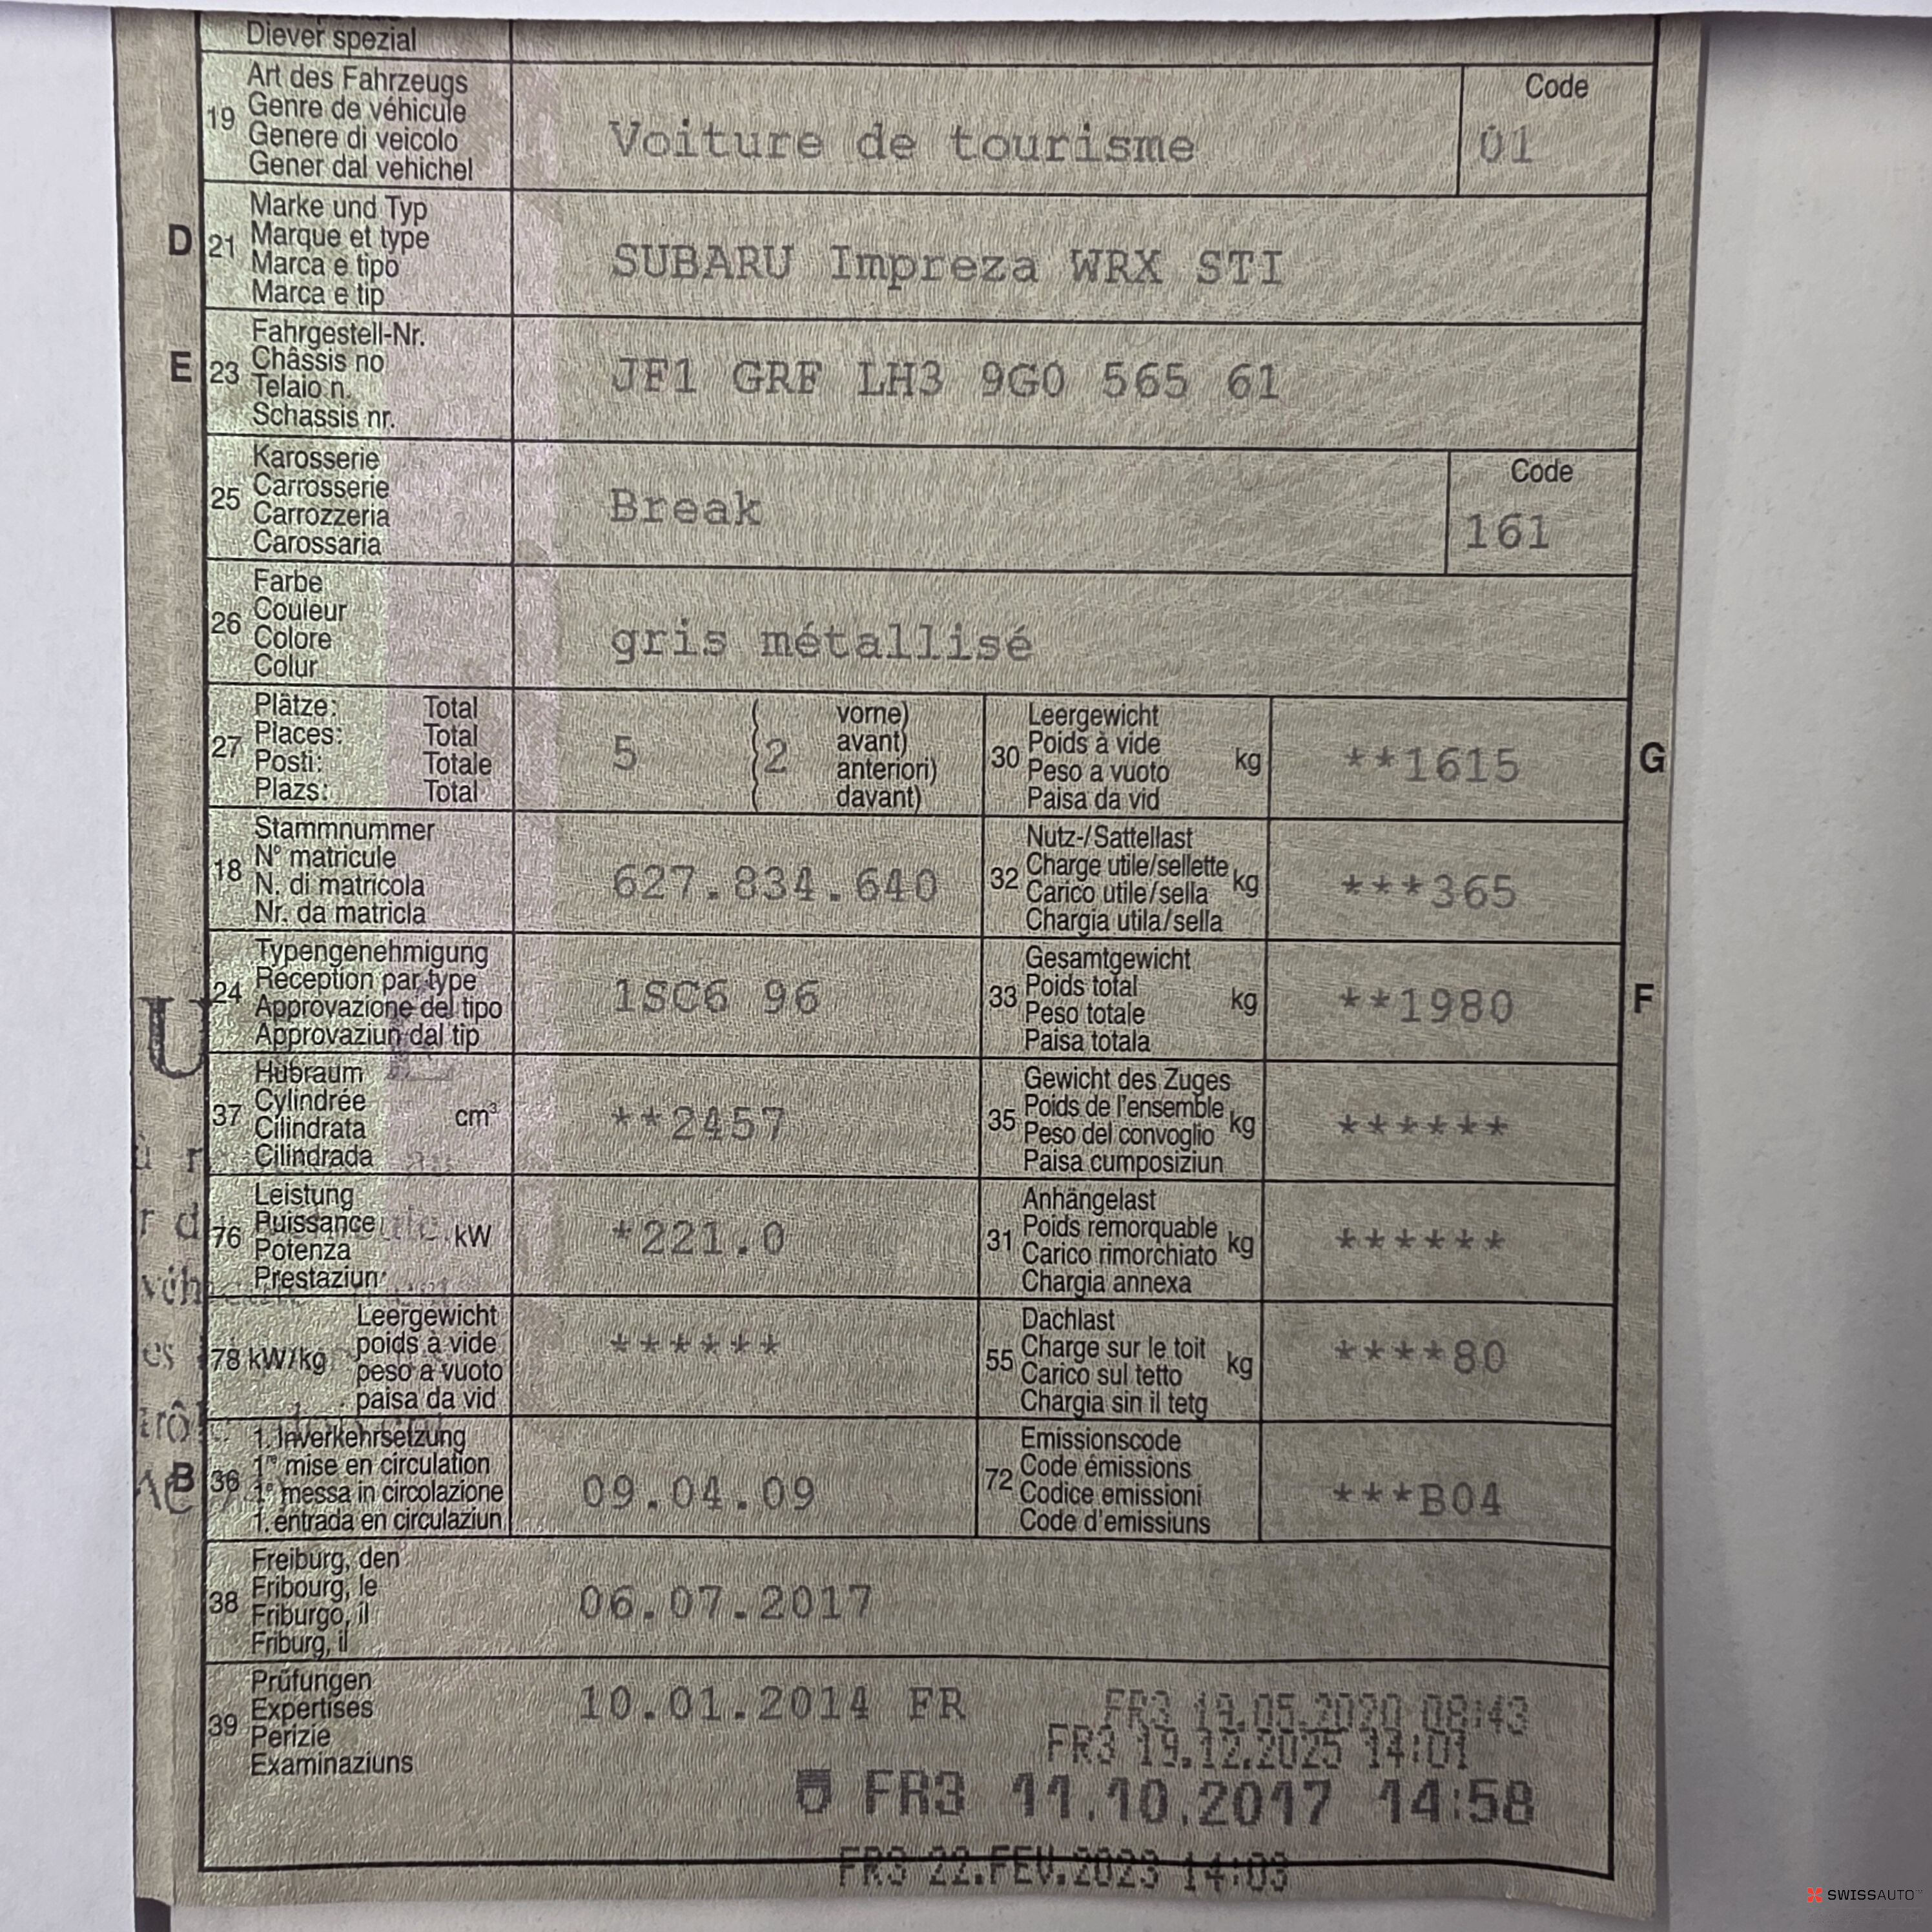 Diever spezial
19 Art des Fahrzeugs
Genre de véhicule
Genere di veicolo
Gener dal vehichel
Voiture de tourisme
Code
01
D 21 Marke und Typ
Marque et type
Marca e tipo
Marca e tip
SUBARU Impreza WRX STI
E 23 Fahrgestell-Nr.
Châssis no
Telaio n.
Schassis nr.
JF1 GRF LH3 9G0 565 61
25 Karosserie
Carrosserie
Carrozzeria
Carossaria
Break
Code
161
26 Farbe
Couleur
Colore
Colur
gris métallisé
27 Plätze: Total
Places: Total
Posti: Totale
Plazs: Total
5 (2 vorne)
avant)
anteriori)
davant)
30 Leergewicht
Poids à vide
Peso a vuoto
Paisa da vid
kg
**1615
G
18 Stammnummer
N° matricule
N. di matricola
Nr. da matricla
627.834.640
32 Nutz-/Sattellast
Charge utile/sellette
Carico utile/sella
Chargia utila/sella
kg
***365
24 Typengenehmigung
Réception par type
Approvazione del tipo
Approvaziun dal tip
1SC6 96
33 Gesamtgewicht
Poids total
Peso totale
Paisa totala
kg
**1980
F
37 Hubraum
Cylindrée
Cilindrata
Cilindrada
cm³
**2457
35 Gewicht des Zuges
Poids de l'ensemble
Peso del convoglio
Paisa cumposiziun
kg
******
76 Leistung
Puissance
Potenza
Prestaziun
kW
*221.0
31 Anhängelast
Poids remorquable
Carico rimorchiato
Chargia annexa
kg
******
78 kW/kg Leergewicht
poids à vide
peso a vuoto
paisa da vid
******
55 Dachlast
Charge sur le toit
Carico sul tetto
Chargia sin il tetg
kg
****80
B 36 1. Inverkehrsetzung
1re mise en circulation
1a messa in circolazione
1. entrada en circulaziun
09.04.09
72 Emissionscode
Code émissions
Codice emissioni
Code d'emissiuns
***B04
38 Freiburg, den
Fribourg, le
Friburgo, il
Friburg, il
06.07.2017
39 Prüfungen
Expertises
Perizie
Examinaziuns
10.01.2014 FR
FR3 19.05.2020 08:43
FR3 19.12.2025 14:01
FR3 11.10.2017 14:58
FR3 22.FEV.2023 14:03
SWISSAUTO